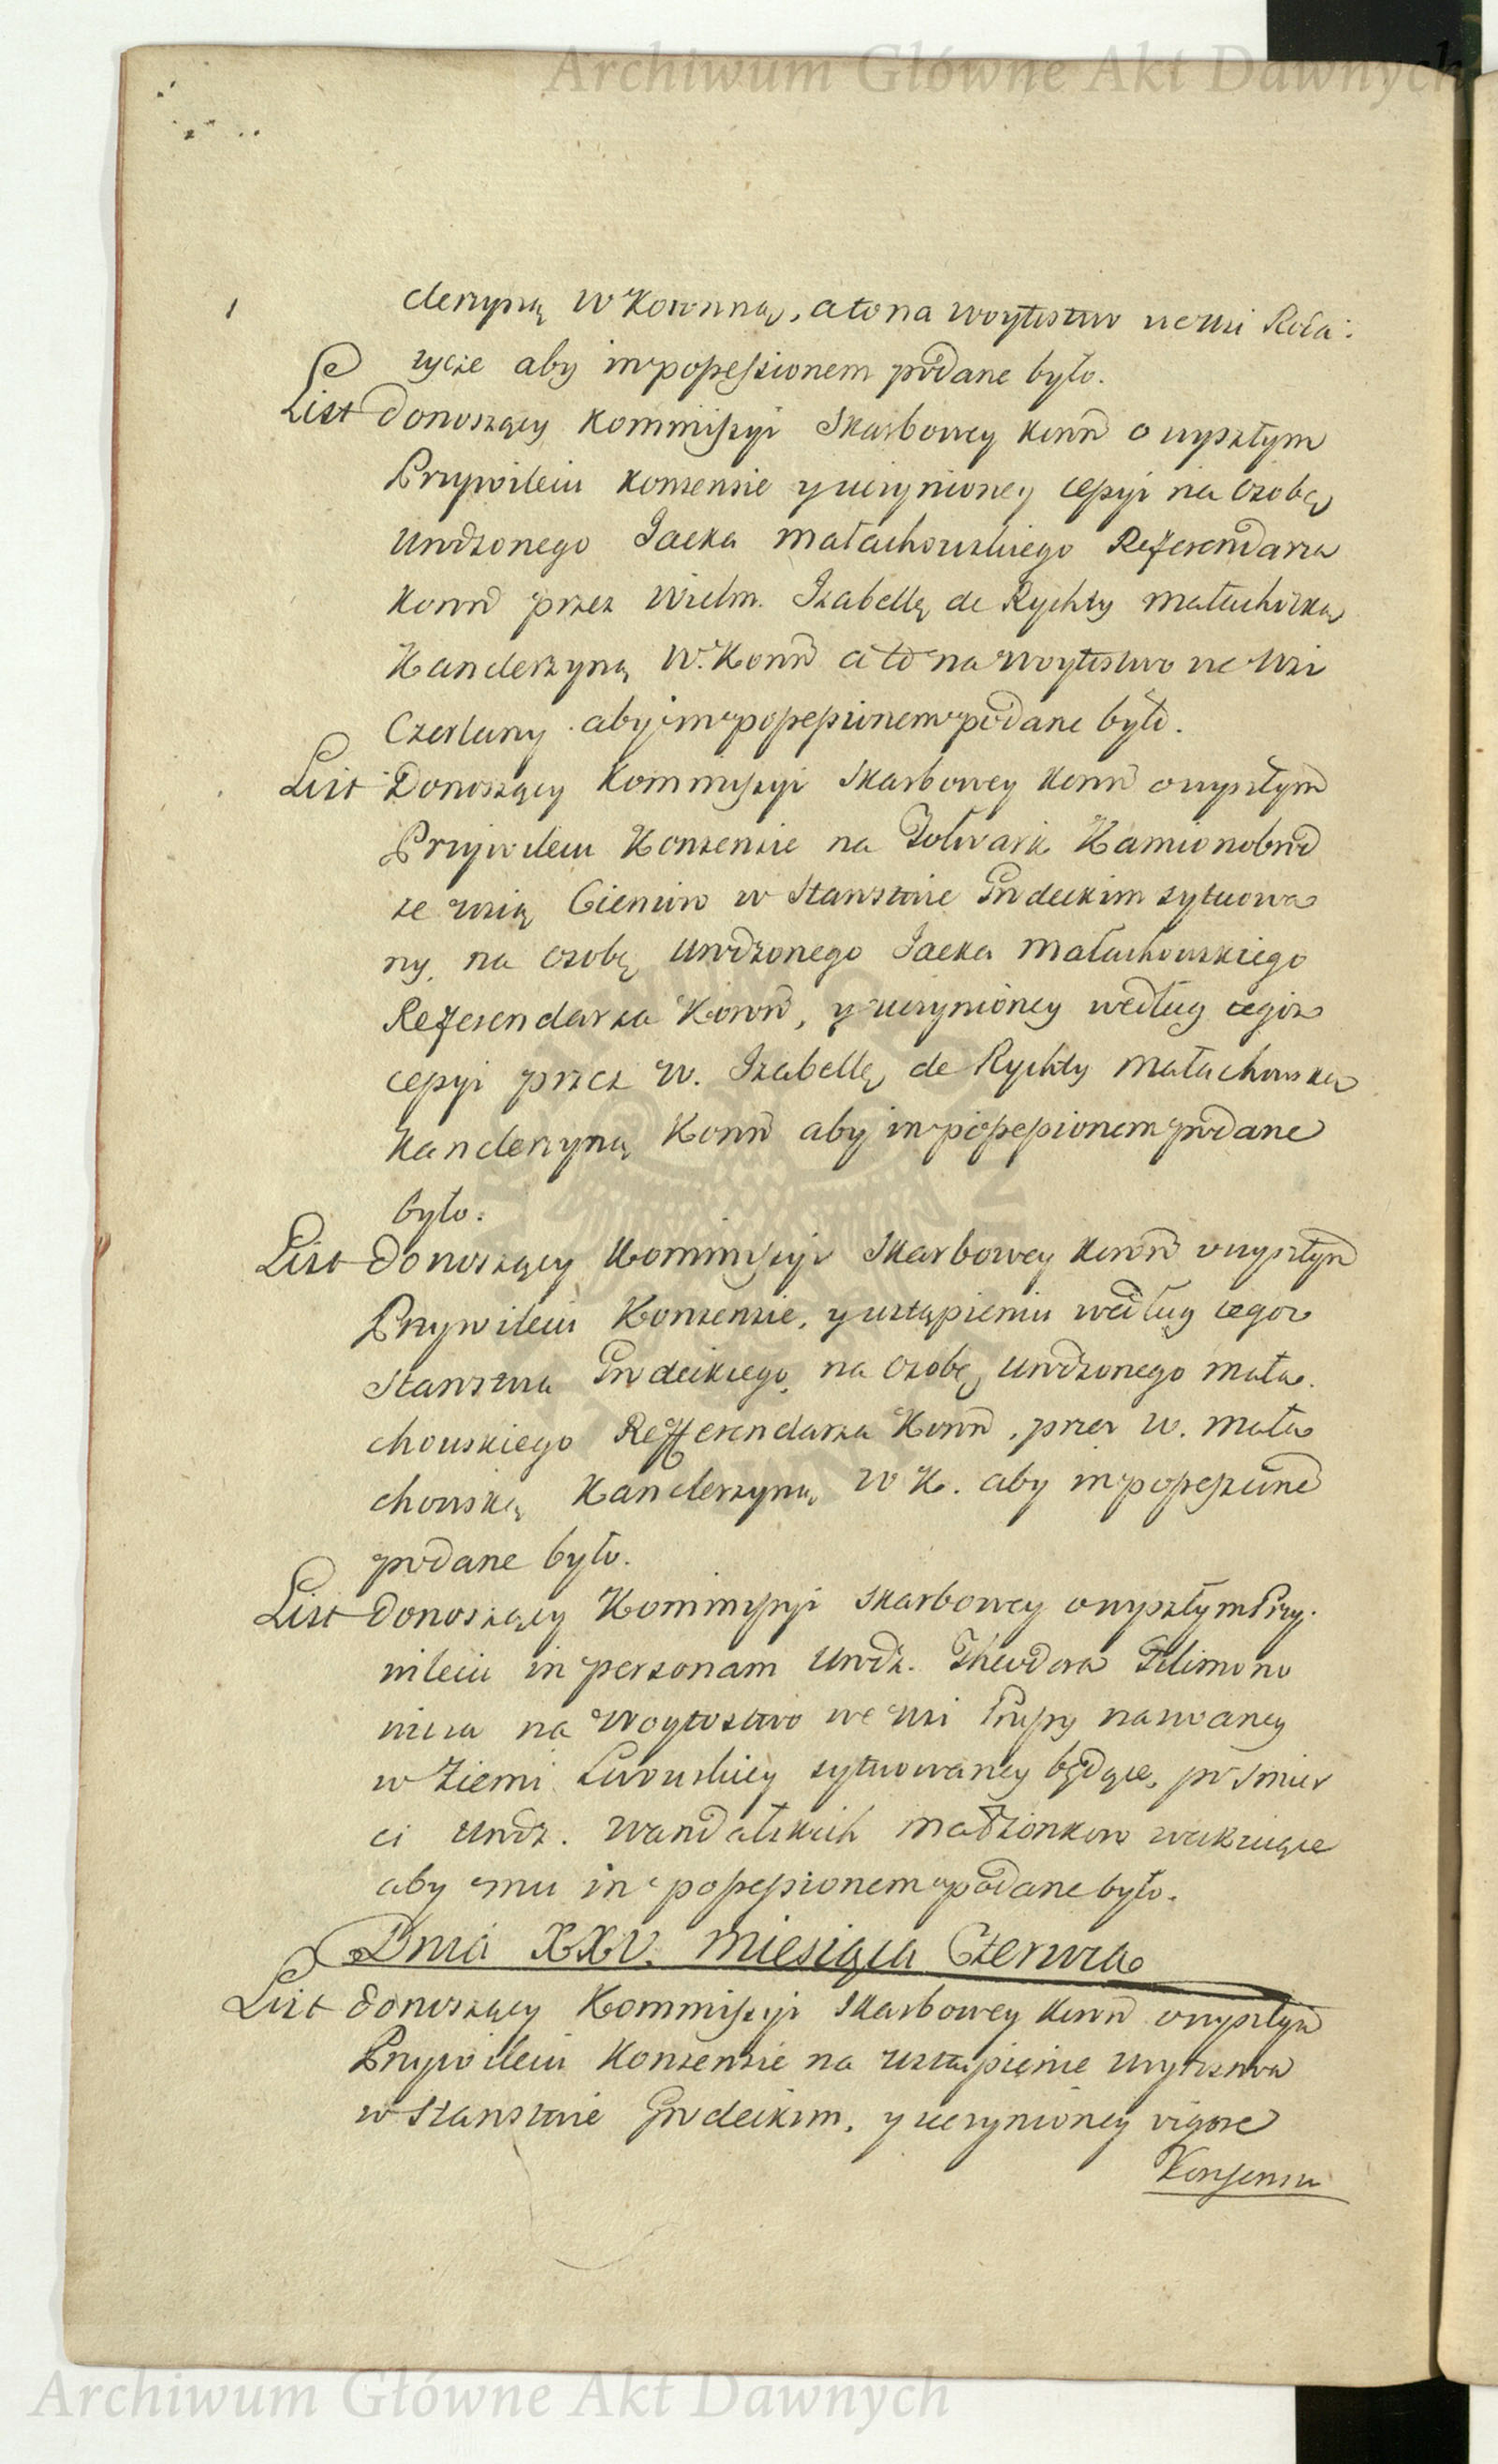 Archiwum Główne Akt Dawnych
clerzyną W Koronną, a to na woytostwo we wsi
życze aby in possessionem podane było.
List donoszący Kommissyi Skarbowey Koron o wyszłym
Przywileiu konsensie y uczynioney cessyi na osobę
Urodzonego Jacka Małachowskiego Referendarza
Koron przez Wielm. Izabellę de Rychty Małachowską
Kanclerzyną W. Koron a to na Woytostwo we wsi
Czerlany aby im possessionem podane było.
List Donoszący Kommissyi Skarbowey Koron o wyszłym
Przywileiu Konsensie na Folwark Kamionobrod
ze wsią Cieniow w Starostwie Grodeckim sytuowa
ny, na osobę Urodzonego Jacka Małachowskiego
Referendarza Koron, y uczynioney według tegoż
cessyi przez W. Izabellę de Rychty Małachowską
Kanclerzyną Koron aby in possessionem podane
było.
List donoszący Kommissyi Skarbowey Koron o wyszłym
Przywileiu Konsensie, y ustąpieniu według tegoż
Starostwa Grodeckiego, na osobę Urodzonego Mała
chowskiego Refferendarza Koron, przez W. Mała
chowską Kanclerzyną W K. aby in possessione
podane było.
List donoszący Kommissyi Skarbowey o wyszłym Przy:
wileiu in personam Urodz. Theodora Filimono
wicza na Woytostwo we wsi nazwaney
w Ziemi Lwowskiey sytuowaney będące, po śmier
ci Urodz. Wandalskich małżonkow wakuiące
aby mu in possessionem podane było.
Dnia XXV. Miesiąca Czerwca
List donoszący Kommissyi Skarbowey Koron o wyszłym
Przywileiu Konsensie na ustąpienie Woytostwa
w Starostwie Grodeckim, y uczynioney vigore
Konsensu
Archiwum Główne Akt Dawnych